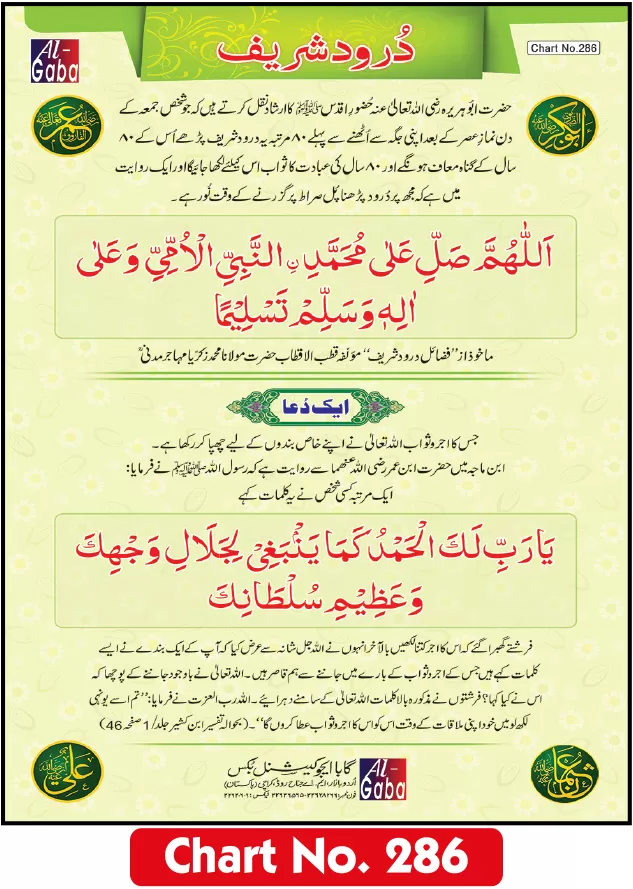 درود شریف
Al-Gaba
Chart No.286
ابوبکر
عمر
الفاروق
حضرت ابوہریرہ رضی اللہ تعالیٰ عنہ حضورِ اقدس ﷺ کا ارشاد نقل کرتے ہیں کہ جو شخص جمعہ کے
دن نمازِ عصر کے بعد اپنی جگہ سے اُٹھنے سے پہلے ۸۰ مرتبہ یہ درود شریف پڑھے اُس کے ۸۰
سال کے گناہ معاف ہونگے اور ۸۰ سال کی عبادت کا ثواب اس کیلئے لکھا جائیگا اور ایک روایت
میں ہے کہ مجھ پر دُرود پڑھنا پل صراط پر گزرنے کے وقت نُور ہے۔
اَللّٰهُمَّ صَلِّ عَلٰى مُحَمَّدِ نِ النَّبِيِّ الْاُمِّيِّ وَعَلٰى
اٰلِهٖ وَسَلِّمْ تَسْلِيْمًا
ماخوذ از ”فضائل درود شریف“ مؤلفہ قطب الاقطاب حضرت مولانا محمد زکریا مہاجر مدنیؒ
ایک دُعا
جس کا اجر و ثواب اللہ تعالیٰ نے اپنے خاص بندوں کے لیے چھپا کر رکھا ہے۔
ابن ماجہ میں حضرت ابن عمر رضی اللہ عنھما سے روایت ہے کہ رسول اللہ ﷺ نے فرمایا:
ایک مرتبہ کسی شخص نے یہ کلمات کہے
يَارَبِّ لَكَ الْحَمْدُ كَمَا يَنْۢبَغِيْ لِجَلَالِ وَجْهِكَ
وَعَظِيْمِ سُلْطَانِكَ
فرشتے گھبرا گئے کہ اس کا اجر کتنا لکھیں بالآخر انہوں نے اللہ جل شانہ سے عرض کیا کہ آپ کے ایک بندے نے ایسے
کلمات کہے ہیں جس کے اجر و ثواب کے بارے میں جاننے سے ہم قاصر ہیں۔ اللہ تعالیٰ نے باوجود جاننے کے پوچھا کہ
اس نے کیا کہا؟ فرشتوں نے مذکورہ بالا کلمات اللہ تعالیٰ کے سامنے دہرائے۔ اللہ رب العزت نے فرمایا: ”تم اسے یونہی
لکھ لو میں خود اپنی ملاقات کے وقت اس کو اس کا اجر و ثواب عطا کروں گا“۔ (بحوالہ تفسیر ابن کثیر جلد/1 صفحہ 46)
عثمان
علی
گابا ایجوکیشنل بکس
اُردو بازار، ایم۔ اے جناح روڈ، کراچی (پاکستان)
Al-Gaba
Chart No. 286